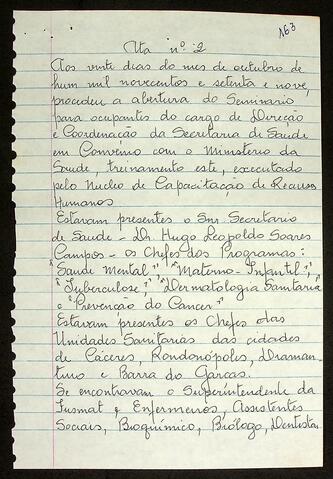 163
Ata nº 2
Aos vinte dias do mes de outubro de
hum mil novecentos e setenta e nove,
procedeu a abertura do Seminario
para ocupantes do cargo de Direção
e Coordenação da Secretaria de Saude
em Convênio com o Ministério da
Saude, treinamento este, executado
pelo Nucleo de Capacitação de Recursos
Humanos
Estavam presentes o Snr Secretario
de Saude - Dr Hugo Leopoldo Soares
Campos - os Chefes dos Programas:
"Saude Mental", "Materno-Infantil",
"Tuberculose", "Dermatologia Sanitaria"
e "Prevenção do Cancer"
Estavam presentes os Chefes das
Unidades Sanitarias das cidades
de Cáceres, Rondonópolis, Diaman-
tino e Barra do Garças.
Se encontravam o Superintendente da
Fusmat e Enfermeiros, Assistentes
Sociais, Bioquímico, Biólogo, Dentistas